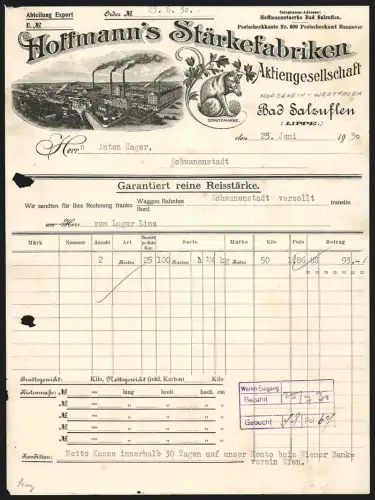 Abteilung Export
Order №
25. 6. 30.
Telegramm-Adresse:
Hoffmannstaerke Bad Salzuflen.
Postscheckkonto Nr. 609 Postscheckamt Hannover
E. №
Hoffmann's Stärkefabriken
Aktiengesellschaft
NORDRHEIN-WESTFALEN
Bad Salzuflen
(LIPPE.)
SCHUTZMARKE.
den 25. Juni 1930
Herrn Anton Hager,
Schwanenstadt
Garantiert reine Reisstärke.
Wir sandten für Ihre Rechnung franko Waggon Bahnhof Bord Schwanenstadt verzollt transito
an Herr vom Lager Linz
Märk Nummer Anzahl Art Karte Marke Kilo Preis Betrag
2 Kisten 25 100 Karton à 1/4 Katze 50 1.86 93.-
Bruttogewicht: Kilo, Nettogewicht (inkl. Karton) Kilo
Kistenmaße: № lang breit hoch, cm
№ " " " "
№ " " " "
№ " " " "
№ " " " "
№ " " " "
Waren-Eingang
Bezahlt
Gebucht
Kondition: Netto Kasse innerhalb 30 Tagen auf unser Konto beim Wiener Bank-
verein Wien.